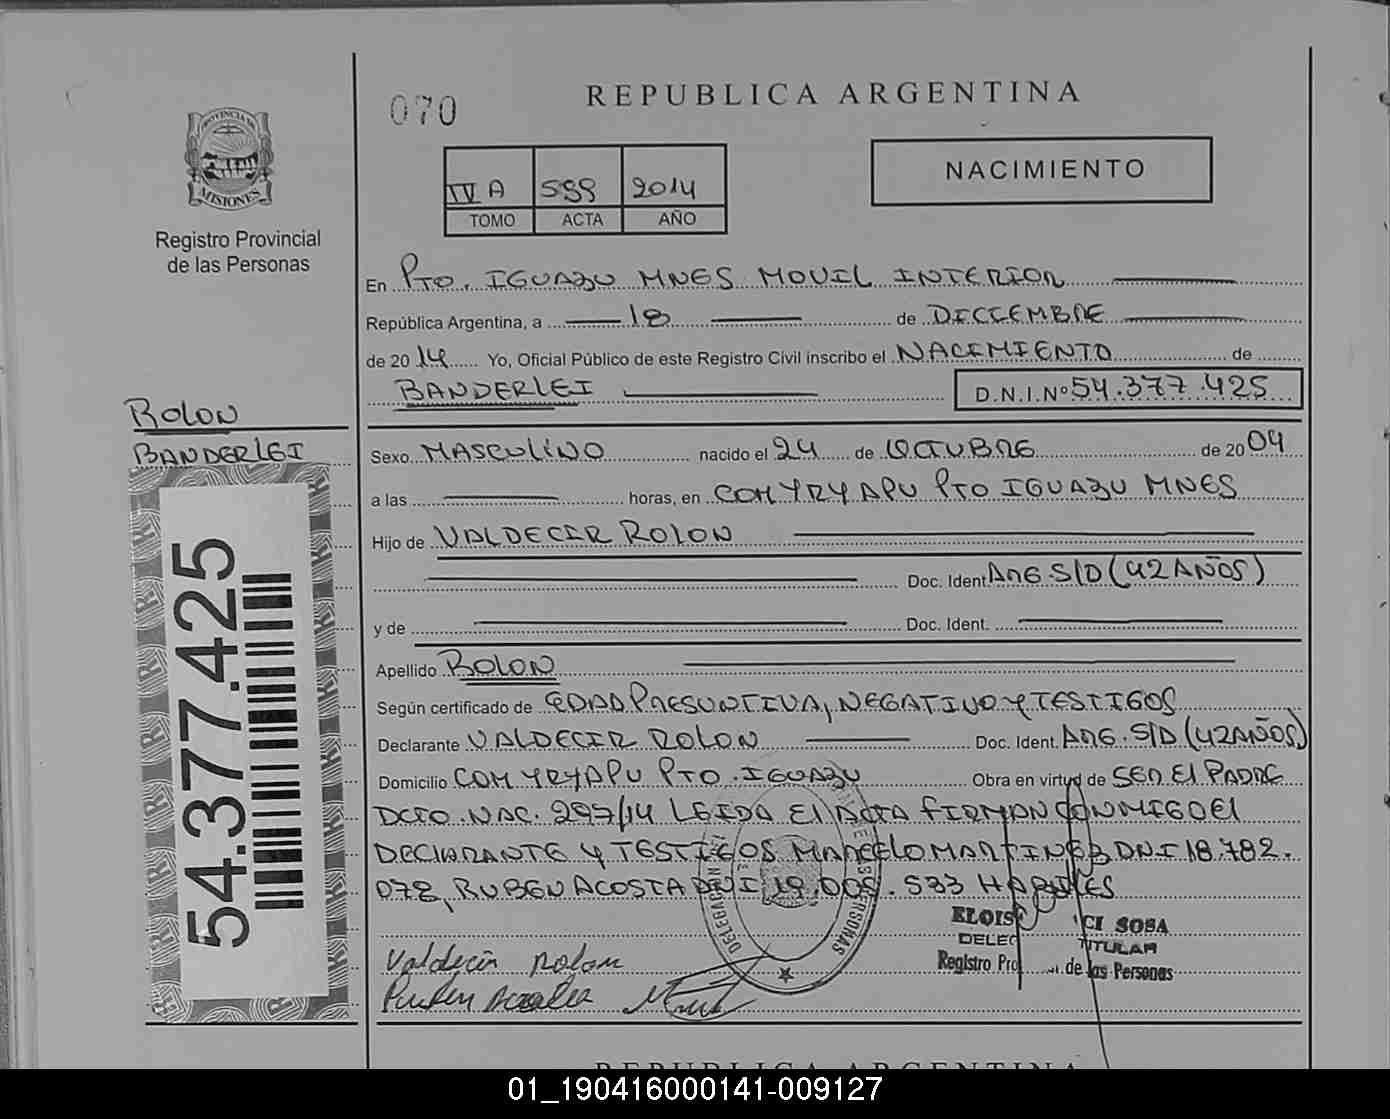 070
REPUBLICA ARGENTINA
PROVINCIA DE
MISIONES
Registro Provincial
de las Personas
NACIMIENTO
IV A 599 2014
TOMO ACTA AÑO
En PTO. IGUAZU MNES MOVIL INTERIOR
República Argentina, a 18 de DICIEMBRE
de 2014 Yo, Oficial Público de este Registro Civil inscribo el NACIMIENTO de
BANDERLEI D.N.I.Nº 54.377.425
ROLON
BANDERLEI
54.377.425
Sexo MASCULINO nacido el 24 de OCTUBRE de 2004
a las horas, en COM YRYAPU PTO IGUAZU MNES
Hijo de VALDECIR ROLON
Doc. Ident ARG S/D (42 AÑOS)
y de Doc. Ident.
Apellido ROLON
Según certificado de EDAD PRESUNTIVA, NEGATIVO Y TESTIGOS
Declarante VALDECIR ROLON Doc. Ident. ARG. S/D (42AÑOS)
Domicilio COM YRYAPU PTO. IGUAZU Obra en virtud de SER El PADRE
DCTO. NAC. 297/14 LEIDA El ACTA FIRMAN CONMIGO El
DECLARANTE Y TESTIGOS MARCELO MARTINEZ DNI 18.782.
078, RUBEN ACOSTA DNI 19.005.533 HABILES
DELEGACION PERSONAS
ELOIS CI SOSA
DELEG TITULAR
Registro Pro de las Personas
Valdecir Rolon
Ruben Acosta
REPUBLICA ARGENTINA
01_190416000141-009127